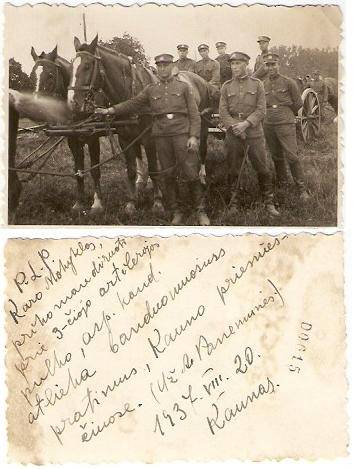 P.L.P.
Karo Mokyklos,
prikomandiruoti
prie 3-čiojo artilerijos
pulko, asp. kand.
atlieka bandomuosius
pratimus, Kauno priemies-
čiuose. (Už A. Panemunės)
1937. VIII. 20.
Kaunas.
D0015